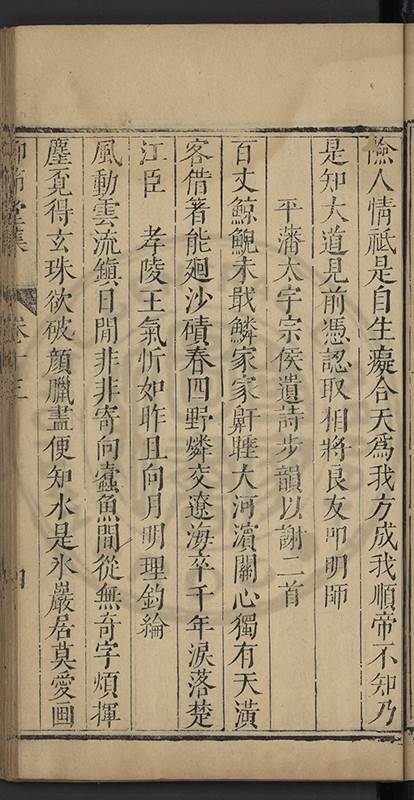 險人情祗是自生癡合天爲我方成我順帝不知乃
是知大道見前憑認取相將良友叩明師
平藩太宇宗侯遺詩步韻以謝二首
百丈鯨鯢未戢鱗家家鼾睡大河濱關心獨有天潢
客借箸能廻沙磧春四野燐交遼海卒千年淚落楚
江臣 孝陵王氣忻如昨且向月明理釣綸
風動雲流鎮日閒非非寄向蠹魚間從無奇字煩揮
麈覓得玄珠欲破顏臘盡便知水是氷巖居莫愛画
堂集 卷十三 四